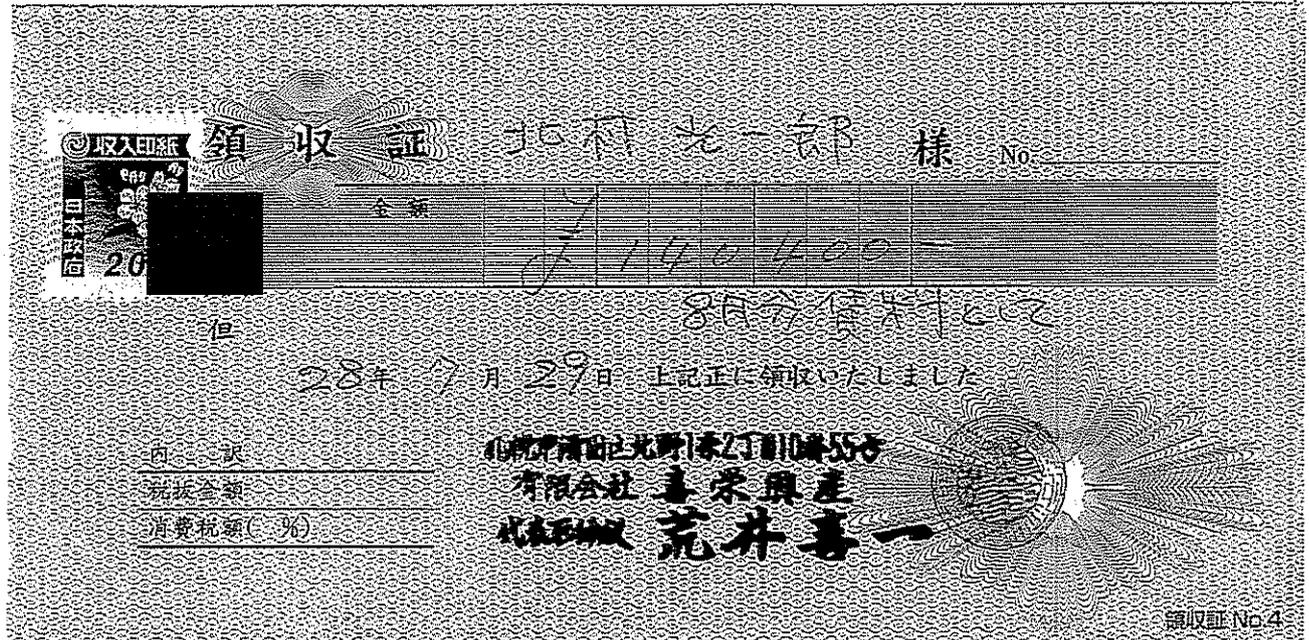 収入印紙
日本政府
20
領収証 北村 光一郎 様 No.
金額
¥140400-
但 8月分借料として
28年 7月 29日 上記正に領収いたしました
内訳
税抜金額
消費税額( %)
札幌市清田区北野1条2丁目10番55号
有限会社 喜栄興産
代表取締役 荒井喜一
領収証 No.4